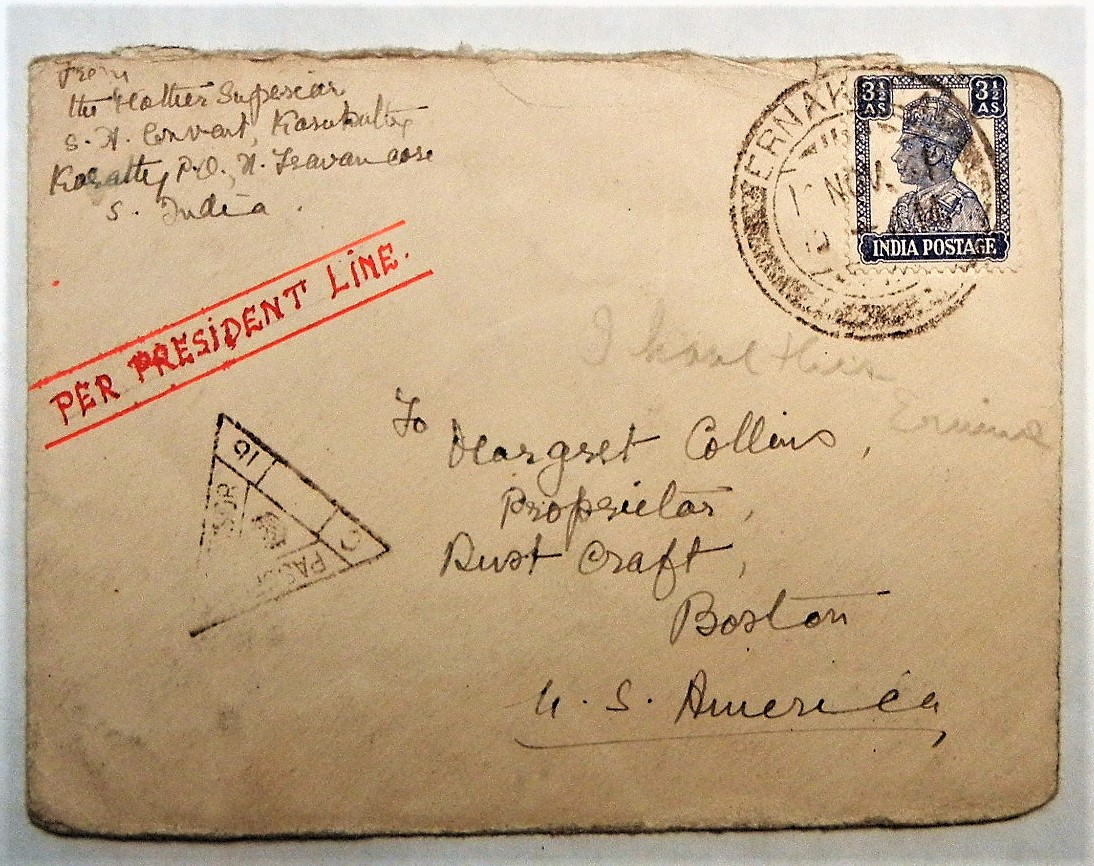 From
the Mother Superior
S. H. Convent, Karukutty
Koratty P.O., N. Travancore
S. India.
3½ AS 3½ AS
INDIA POSTAGE
ERNAK
NOV
PER PRESIDENT LINE.
I have this
16
PASS
SOR
C
To
Margret Collins,
Proprietor,
Rust Craft,
Boston
U. S. America